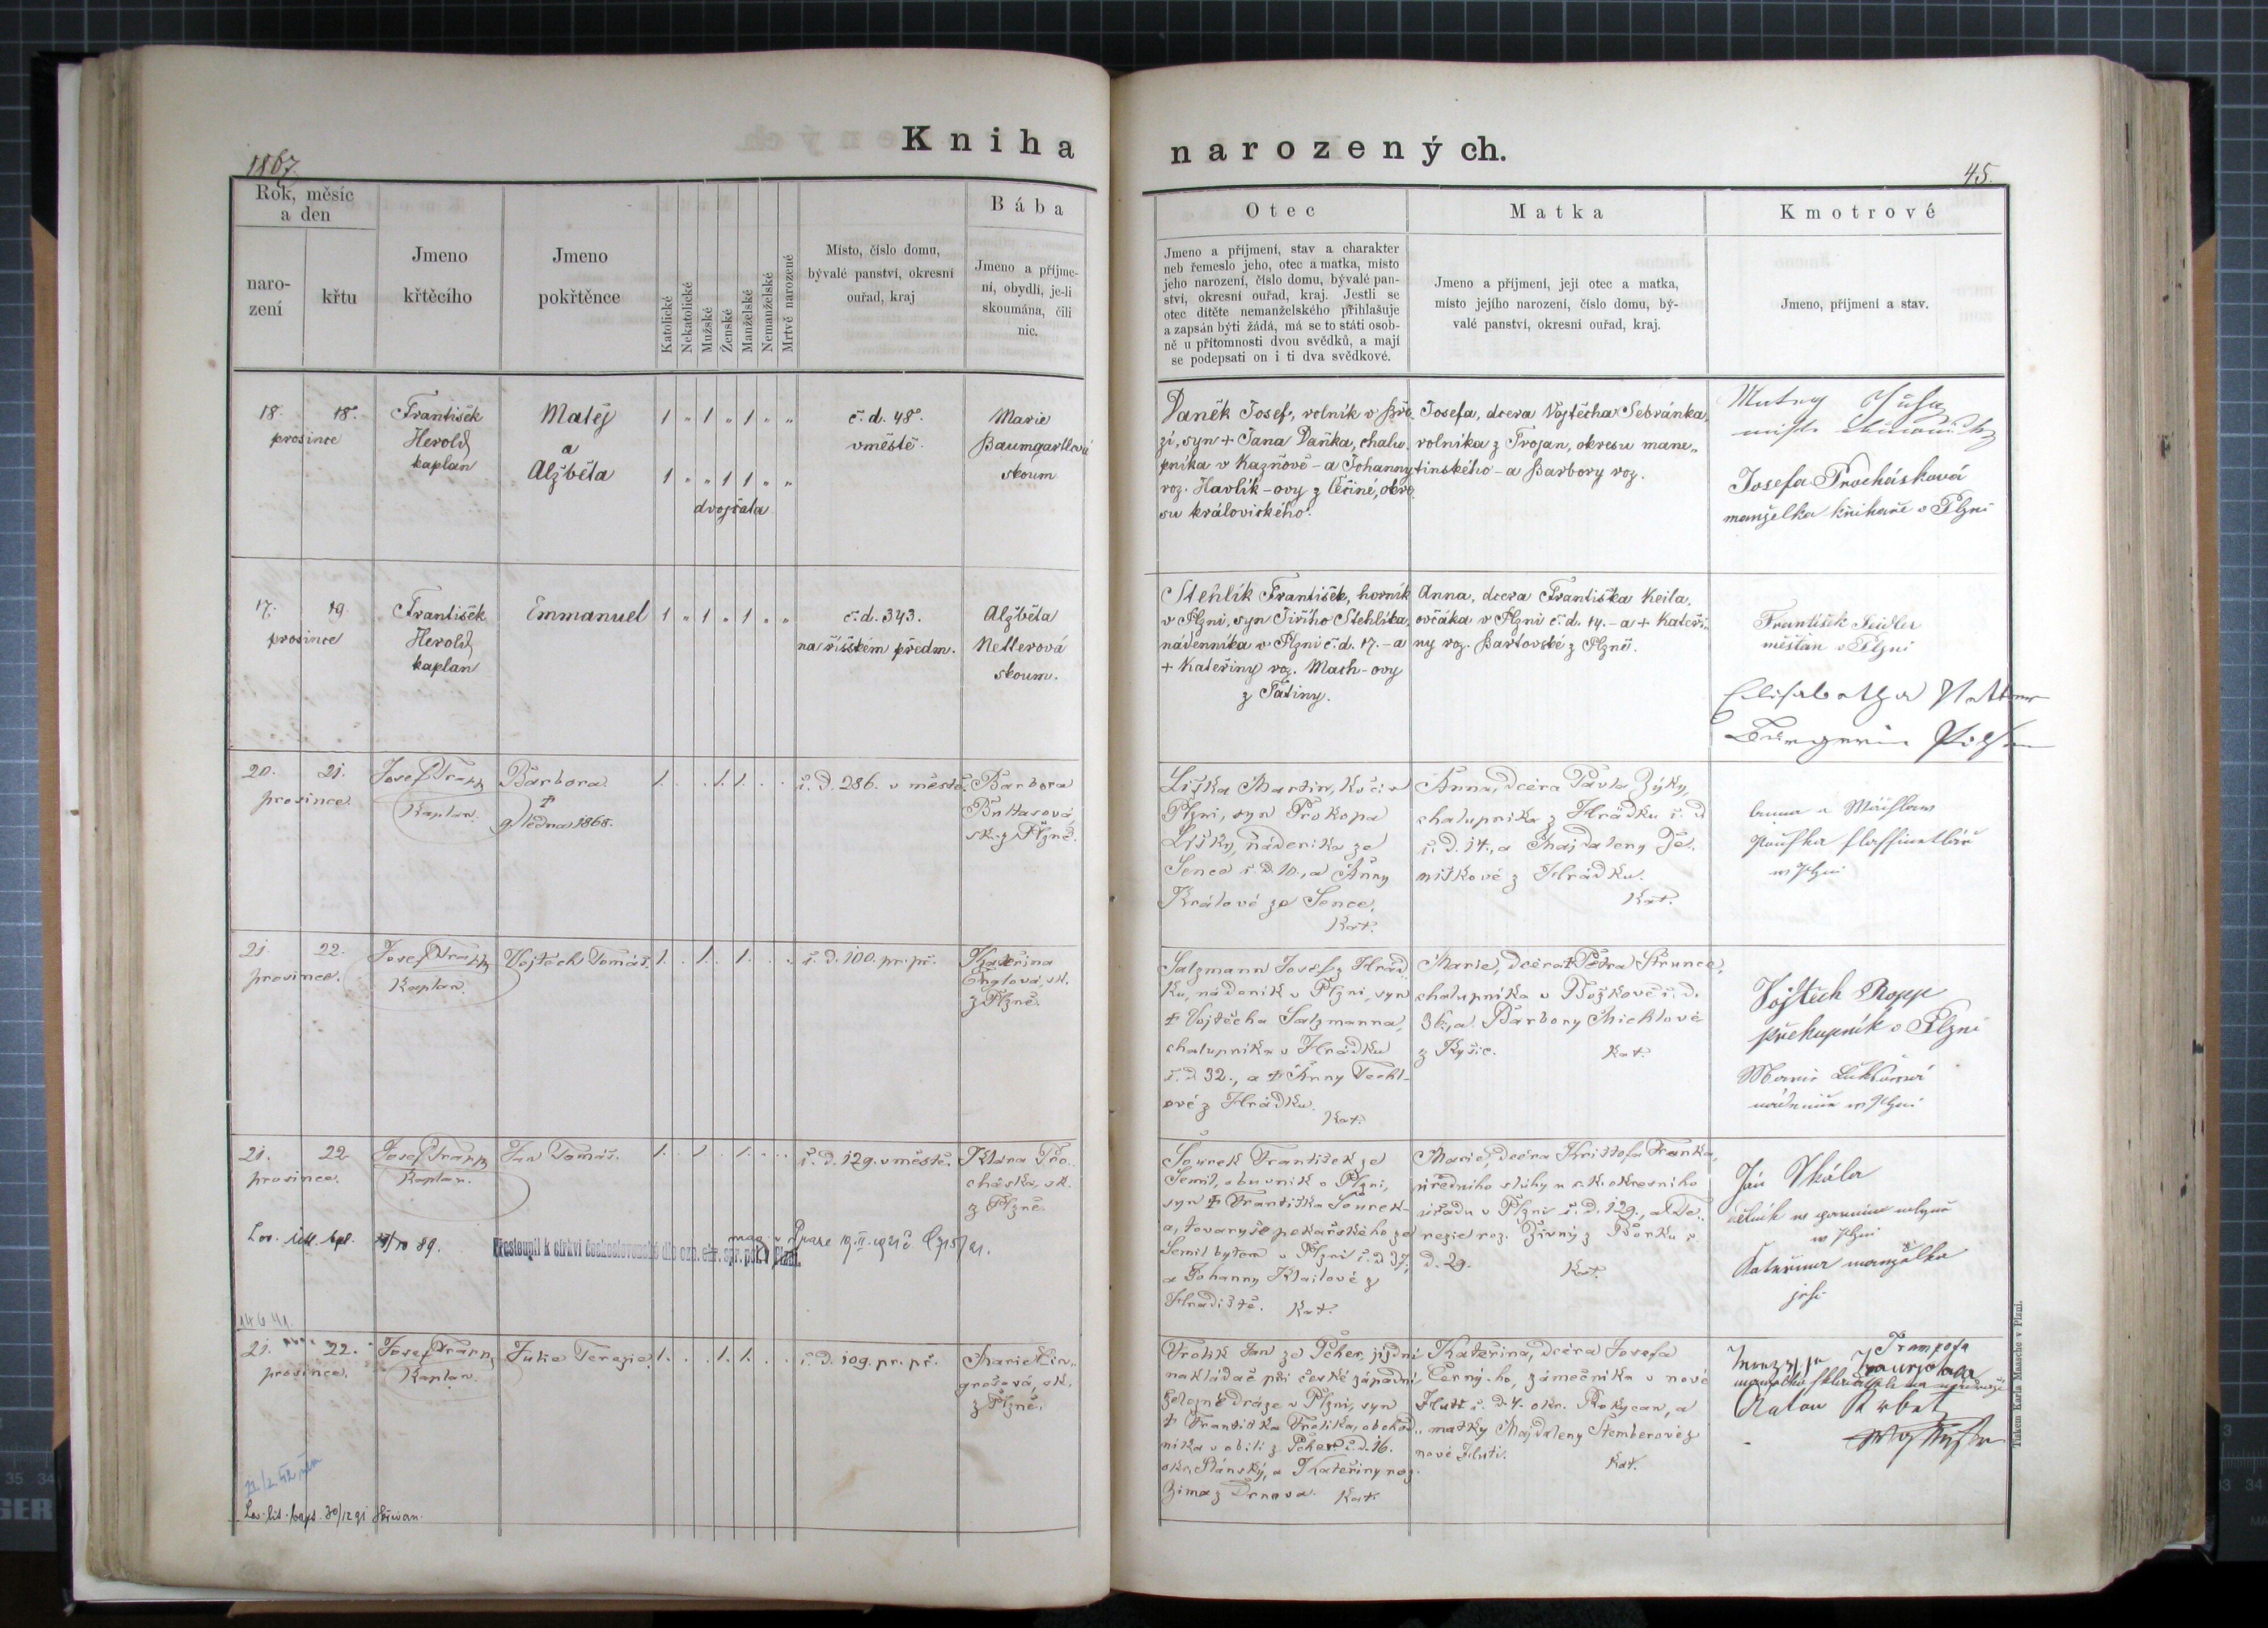 1867.
Kniha narozených.
45.
Rok, měsíc
a den
naro-
zení
křtu
Jmeno
křtěcího
Jmeno
pokřtěnce
Katolické
Nekatolické
Mužské
Ženské
Manželské
Nemanželské
Mrtvě narozené
Místo, číslo domu,
bývalé panství, okresní
ouřad, kraj
Bába
Jmeno a příjme-
ní, obydlí, je-li
skoumána, čili
nic.
Otec
Jmeno a příjmení, stav a charakter
neb řemeslo jeho, otec a matka, místo
jeho narození, číslo domu, bývalé pan-
ství, okresní ouřad, kraj. Jestli se
otec dítěte nemanželského přihlašuje
a zapsán býti žádá, má se to státi osob-
ně u přítomnosti dvou svědků, a mají
se podepsati on i ti dva svědkové.
Matka
Jmeno a příjmení, její otec a matka,
místo jejího narození, číslo domu, bý-
valé panství, okresní ouřad, kraj.
Kmotrové
Jmeno, příjmení a stav.
18. 18.
prosince
František
Herold
kaplan
Matěj
a
Alžběta
1 " 1 " 1 " "
1 " " 1 1 " "
dvojčata
č. d. 48.
v městě.
Marie
Baumgartlová
skoum.
Daněk Josef, rolník v Bře
zi, syn + Jana Daňka, chalu
pníka v Kaznově - a Johanny
roz. Havlík-ovy z Lečiné, okre
su královického.
Josefa, dcera Vojtěcha Sebránka,
rolníka z Trojan, okresu mane„
tinského - a Barbory roz.
Josefa Prochásková
manželka knihaře v Plzni
17. 19.
prosince
František
Herold
kaplan
Emmanuel
1 " 1 " 1 " "
č. d. 343.
na říšském předm.
Alžběta
Netterová
skoum.
Stehlík František, horník
v Plzni, syn Jiřího Stehlíka,
nádenníka v Plzni č. d. 17. - a
+ Kateřiny roz. Mach-ovy
z Tatiny.
Anna, dcera Františka Keila,
ovčáka v Plzni č. d. 14. - a + Kateři„
ny roz. Bartovské z Plzně.
František Seidler
měšťan v Plzni
Elisabetha Netterer
Bürgerin Pilsen
20. 21.
prosince
Josef Trapp
Kaplan.
Barbora
+
9 ledna 1868.
1. . . 1. 1. . .
č. d. 286. v městě.
Barbora
sk. z Plzně.
Liška Martin, kočí v
Plzni, syn Prokopa
Lišky, nádeníka ze
Sence č. d. 10., a Anny
Králové ze Sence.
Kat.
Anna, dcera Pavla Zýky,
chalupníka z Hrádku č. d
č. d. 14., a Majdaleny Je„
níškové z Hrádku.
Kat.
w Plzni
21. 22.
prosince.
Josef Trapp
Kaplan.
Vojtěch Tomáš.
1. . 1. . 1. . .
č. d. 100. pr. př.
Kateřina
Englová, sk.
z Plzně.
Salzmann Josef z Hrád
ku, nádeník v Plzni, syn
+ Vojtěcha Salzmanna,
chalupníka v Hrádku
č. d 32., a + Anny Techl-
ové z Hrádku.
Kat.
Marie, dcera + Petra Strunce,
chalupníka v Božkově č. d.
36., a Barbory Michlové
z Kyšic. Kat.
Vojtěch Ropp
překupník v Plzni
21. 22.
prosince.
Josef Trapp
Kaplan.
Jan Tomáš.
1. . 1 . 1. . .
č. d. 129. v městě.
Klára Pro„
cháska, sk.
z Plzně.
Přestoupil k církvi československé dle ozn. okr. spr. pol. v Plzni.
Šourek František ze
Semil, obuvník v Plzni,
syn + Františka Šourek-
a, tovaryše pekařského ze
Semil bytem v Plzni č. d 37,
a Johanny Klailové z
Hradiště. Kat.
Marie, dcera Kristofa Franka,
úředního sluhy u c. k. okresního
úřadu v Plzni č. d. 129., a Te„
rezie roz. Živný z Borku č.
d. 29. Kat.
Jan Skála
w Plzni
Kateřina manželka
jeho
14.6.41.
21. 22.
prosince.
Josef Trapp
Kaplan.
Julie Terezie.
1. . . 1. 1. . .
č. d. 109. pr. př.
Marie Cin„
grošová, sk.
z Plzně.
Frolik Jan ze Pcher, jízdní
nakládač při české západní
železné dráze v Plzni, syn
+ Františka Frolika, obchod„
níka v obilí z Pcher č. d. 16.
okr. Slánský, a Kateřiny roz.
Zima z Drnova. Kat.
Kateřina, dcera Josefa
Černý-ho, zámečníka v nové
Huti č. d. 4. okr. Rokycan, a
matky Majdaleny Štemberové z
nové Huti. Kat.
Anton Krbetz
Lev. lit. bapt. 30/12 91
Tiskem Karla Maasche v Plzni.